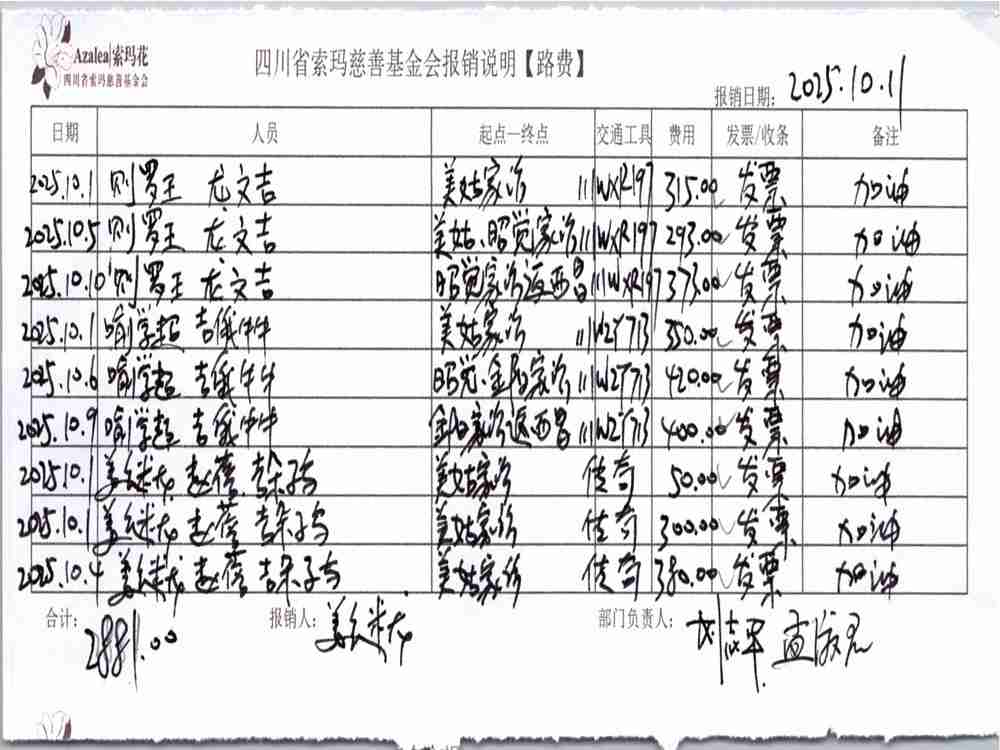 Azalea|索玛花
四川省索玛慈善基金会
四川省索玛慈善基金会报销说明【路费】
报销日期: 2025.10.11
日期 人员 起点—终点 交通工具 费用 发票/收条 备注
2025.10.1 则罗王 龙文吉 美姑家访 川WXR197 315.00 发票 加油
2025.10.5 则罗王 龙文吉 美姑、昭觉家访 川WXR197 293.00 发票 加油
2025.10.10 则罗王 龙文吉 昭觉家访返西昌 川WXR197 373.00 发票 加油
2025.10.1 喻学超 吉俄牛牛 美姑家访 川W2Y713 350.00 发票 加油
2025.10.6 喻学超 吉俄牛牛 昭觉、金阳家访 川W2Y713 420.00 发票 加油
2025.10.9 喻学超 吉俄牛牛 金阳家访返西昌 川W2Y713 400.00 发票 加油
2025.10.1 赵蓓 美姑家访 传奇 50.00 发票 加油
2025.10.1 赵蓓 美姑家访 传奇 300.00 发票 加油
2025.10.4 赵蓓 美姑家访 传奇 380.00 发票 加油
合计: 2881.00 报销人: 部门负责人: